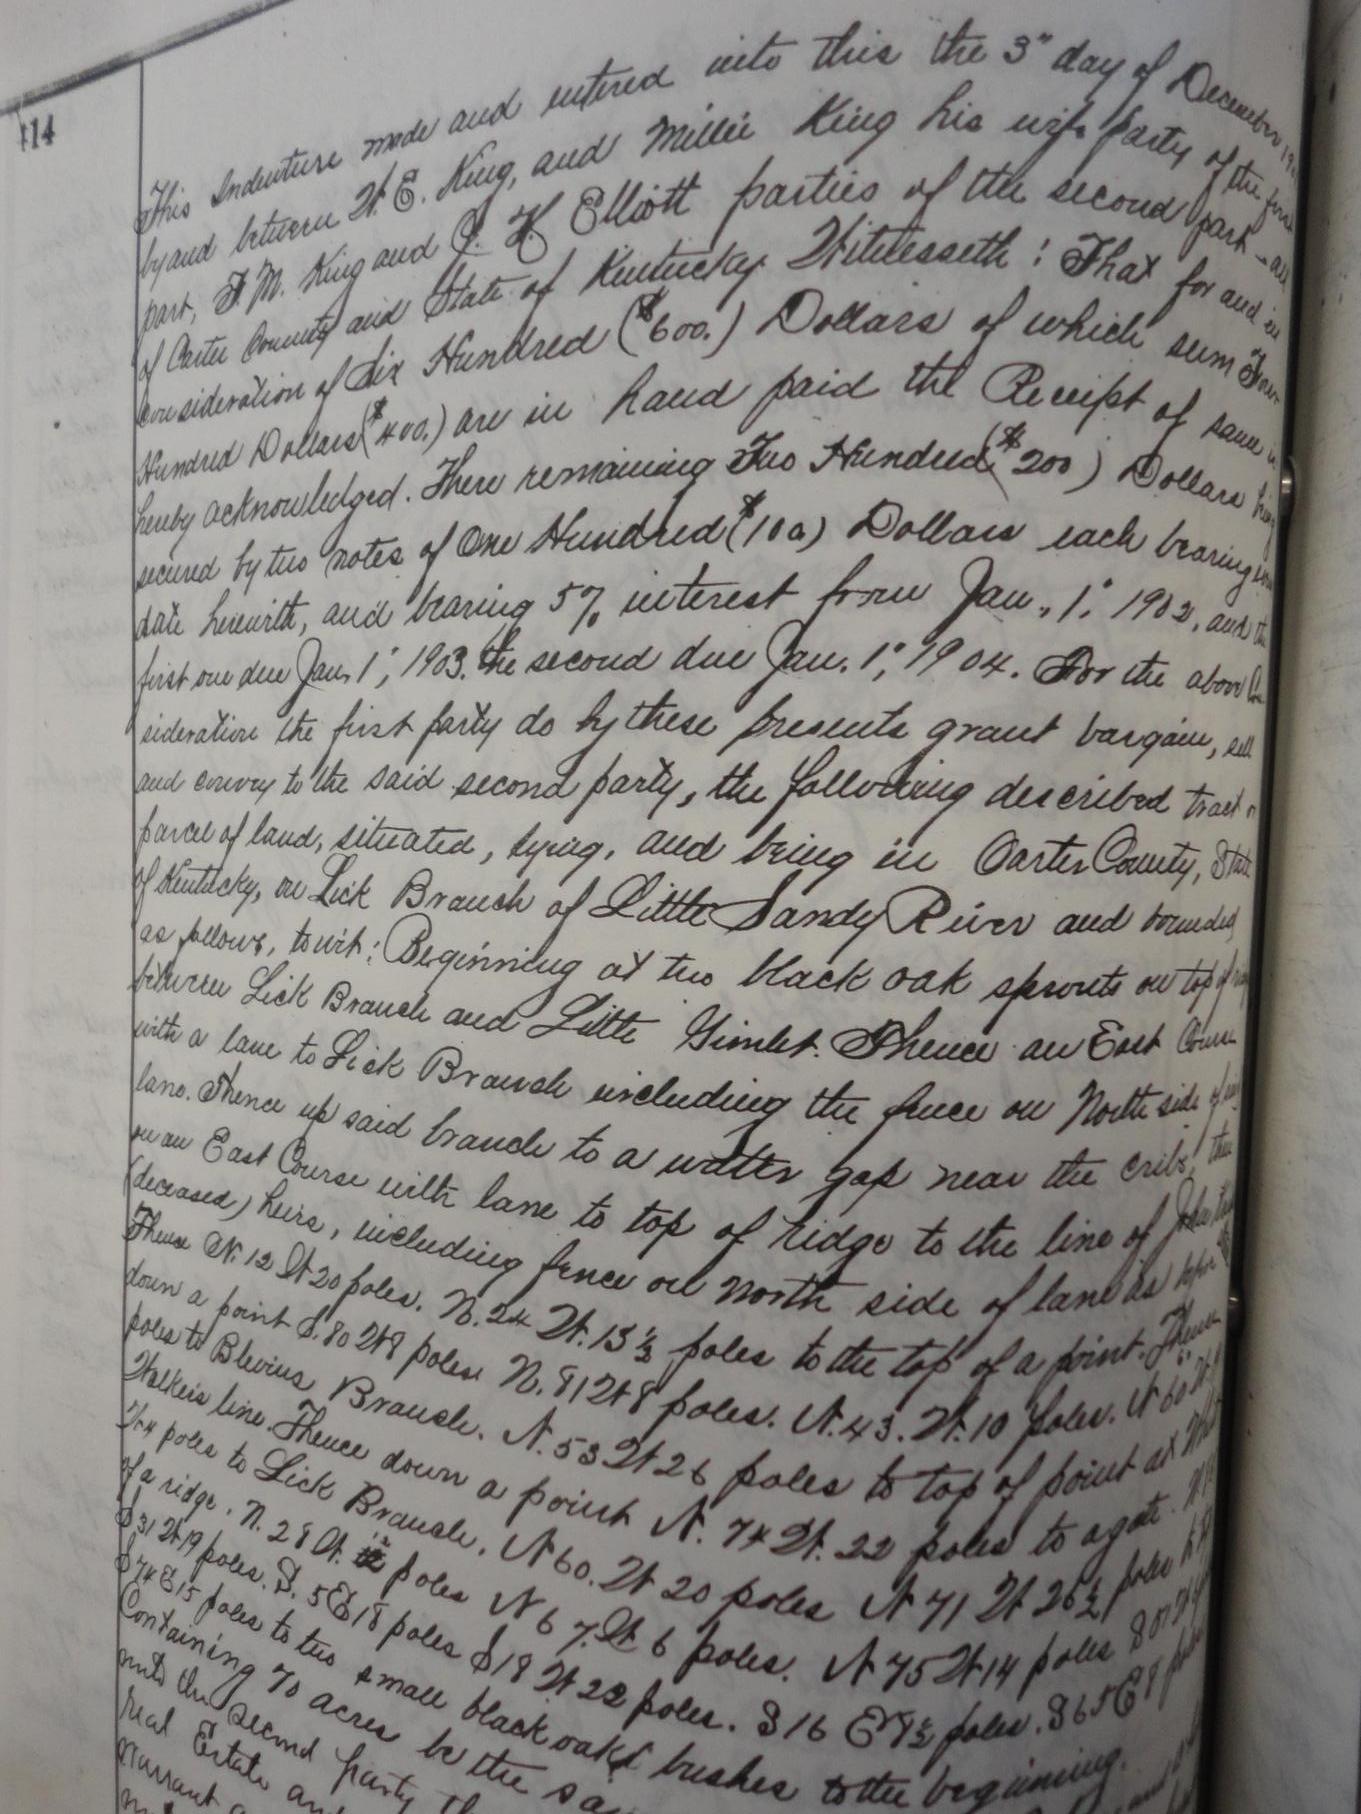 414
This Indenture made and entered into this the 3" day of December 19
by and between W. E. King, and Millie King his wife party of the first
part, F. M. King and J. H. Elliott parties of the second part – all
of Carter County and State of Kentucky. Witnesseth: That for and in
consideration of Six Hundred ($600.) Dollars of which sum Four
Hundred Dollars ($400.) are in hand paid the Receipt of same is
hereby acknowledged. There remaining Two Hundred ($200) Dollars being
secured by two notes of One Hundred ($100) Dollars each bearing
date herewith, and bearing 5% interest from Jan., 1", 1902, and the
first one due Jan. 1", 1903. the second due Jan. 1", 1904. For the above Con
sideration the first party do by these presents grant bargain, sell
and convey to the said second party, the following described tract or
parcel of land, situated, lying, and being in Carter County, State
of Kentucky, on Lick Branch of Little Sandy River and bounded
as follows, towit: Beginning at two black oak sprouts on top of
between Lick Branch and Little Gimlet. Thence an East Course
with a lane to Lick Branch including the fence on North side of
lane. Thence up said branch to a water gap near the crib,
on an East Course with lane to top of ridge to the line of John
(deceased) heirs, including fence on North side of lane as before
Thence N. 12 W 20 poles. N. 24 W. 13 1/2 poles to the top of a point. Thence
down a point S. 80 W 8 poles N. 81 W 8 poles. N. 43. W. 10 poles. N 60
poles to Blevins Branch. N. 53 W 26 poles to top of point at
Walkers line. Thence down a point N. 74 W. 22 poles to a gate.
poles to Lick Branch. N 60. W 20 poles N 71 W 26 1/2 poles
of a ridge. N. 28 W. 12 poles N 67. W 6 poles. N 75 W 14 poles
S 31 W 19 poles. S. 5 E 18 poles S 18 W 22 poles. S 16 E 8 1/2 poles. S 65 E 8
S 74 E 15 poles to two small black oak bushes to the beginning.
Containing 70 acres be the sa
unto the second party
real Estate and
warrant